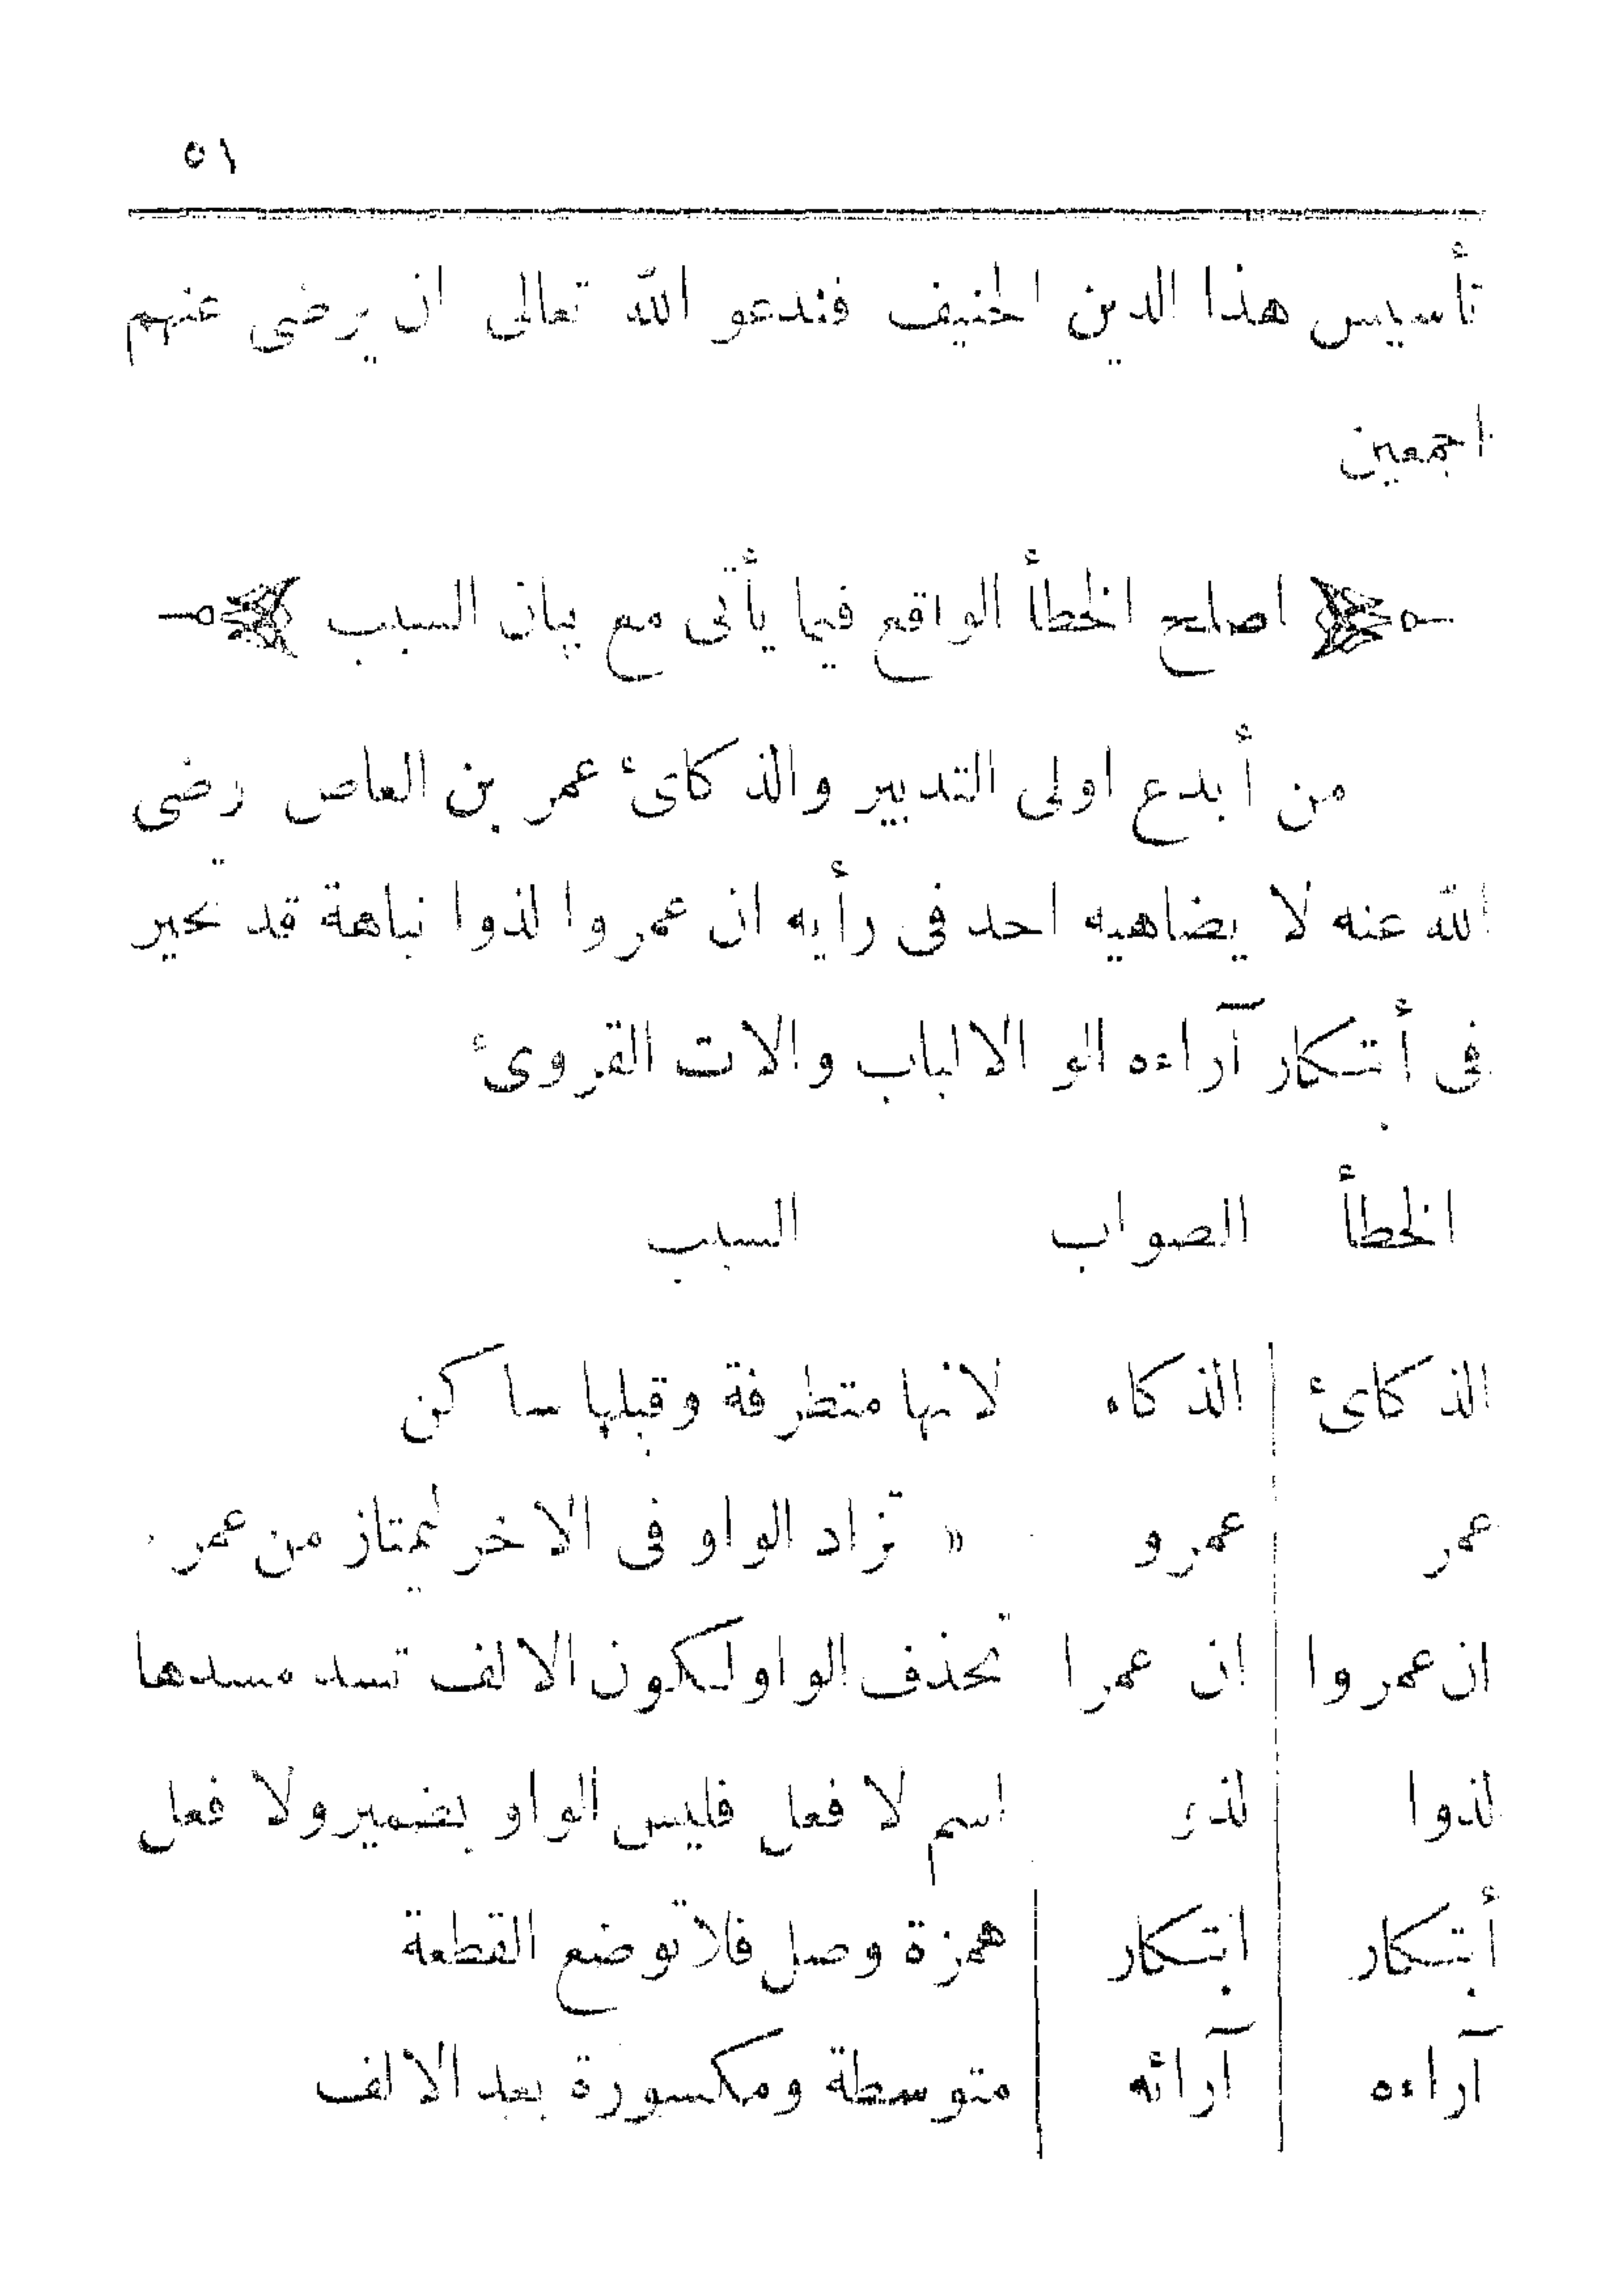 ٥١
تأسيس هذا الدين الحنيف فندعو الله تعالى ان يرضى عنهم
اجمعين
اصلح الخطأ الواقع فيما يأتى مع بيان السبب
من أبدع اولى التدبير والذكائ عمر بن العاص رضى
الله عنه لا يضاهيه احد فى رأيه ان عمروا لذوا نباهة قد تحير
فى أبتكار آراءه الو الالباب والات القروئ
الخطأ الصواب السبب
الذكائ الذكاء لانها متطرفة وقبلها ساكن
عمر عمرو » تزاد الواو فى الاخر ليمتاز من عمر
ان عمروا ان عمرا تحذف الواو لكون الالف تسد مسدها
لذوا لذو اسم لا فعل فليس الواو بضمير ولا فعل
أبتكار ابتكار همزة وصل فلا توضع القطعة
آراءه آرائه متوسطة ومكسورة بعد الالف